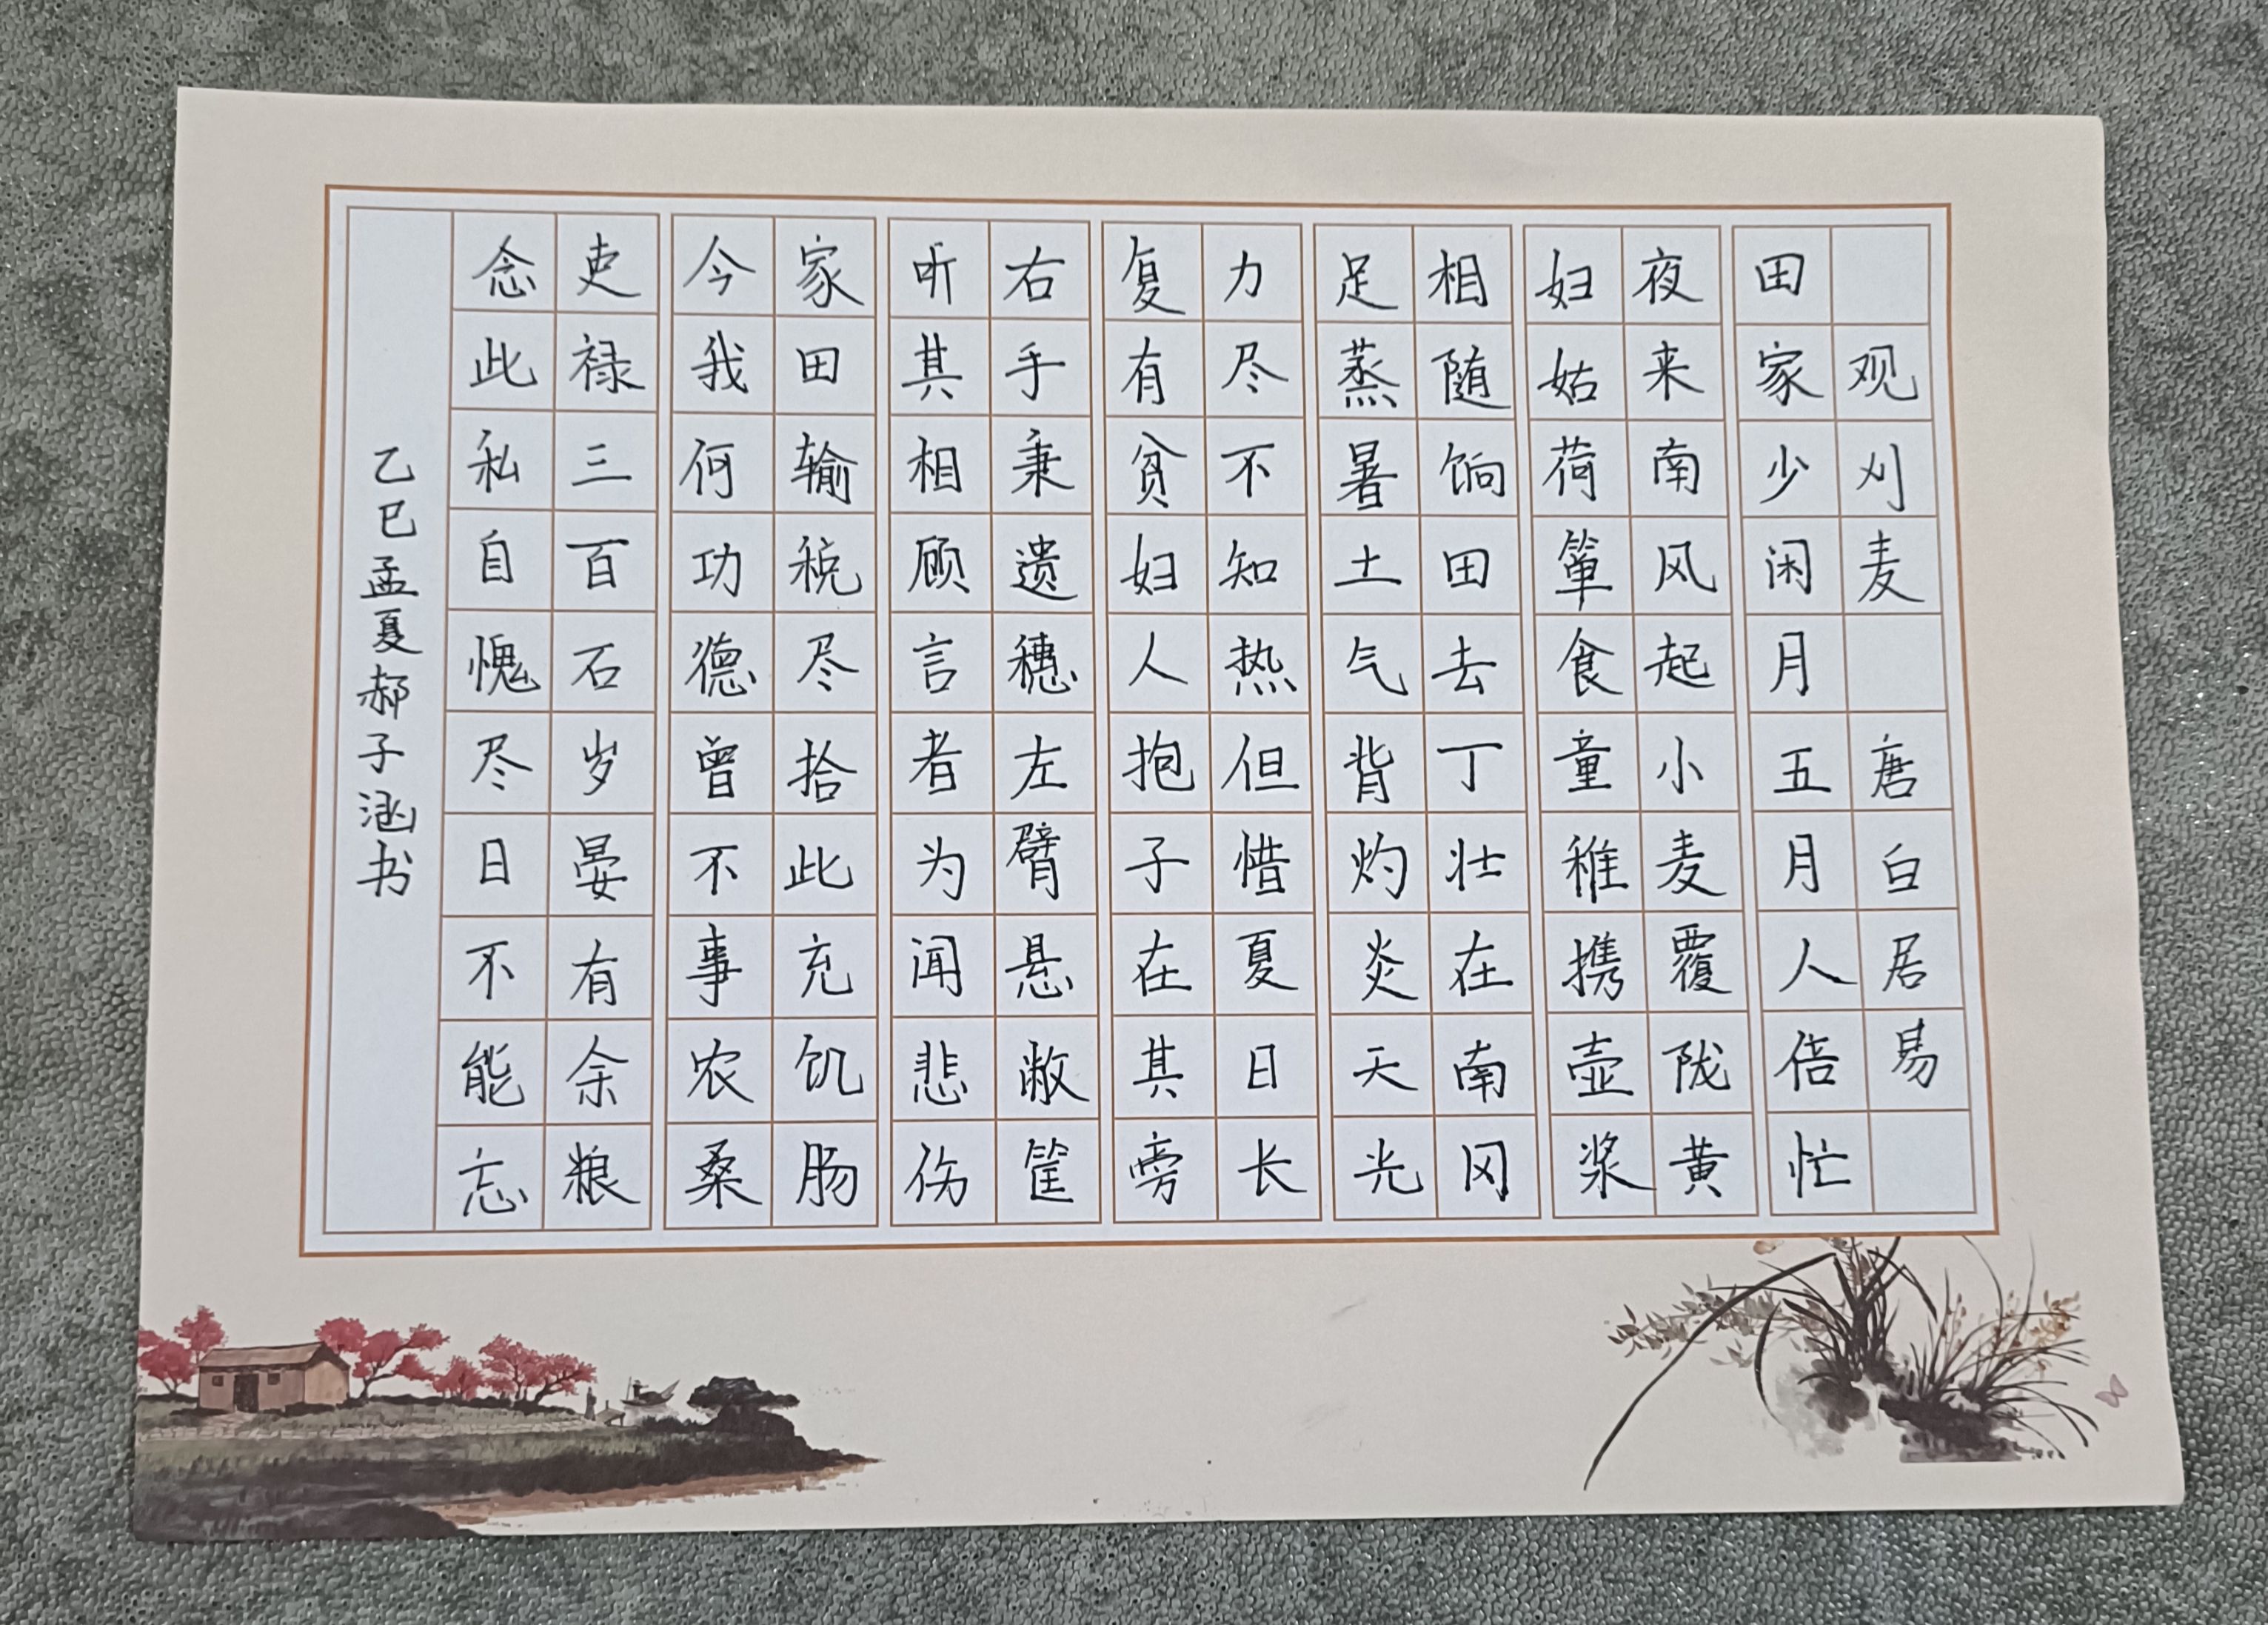 观刈麦 唐白居易
田家少闲月五月人倍忙
夜来南风起小麦覆陇黄
妇姑荷箪食童稚携壶浆
相随饷田去丁壮在南冈
足蒸暑土气背灼炎天光
力尽不知热但惜夏日长
复有贫妇人抱子在其旁
右手秉遗穗左臂悬敝筐
听其相顾言者为闻悲伤
家田输税尽拾此充饥肠
今我何功德曾不事农桑
吏禄三百石岁晏有余粮
念此私自愧尽日不能忘
乙巳孟夏郝子涵书